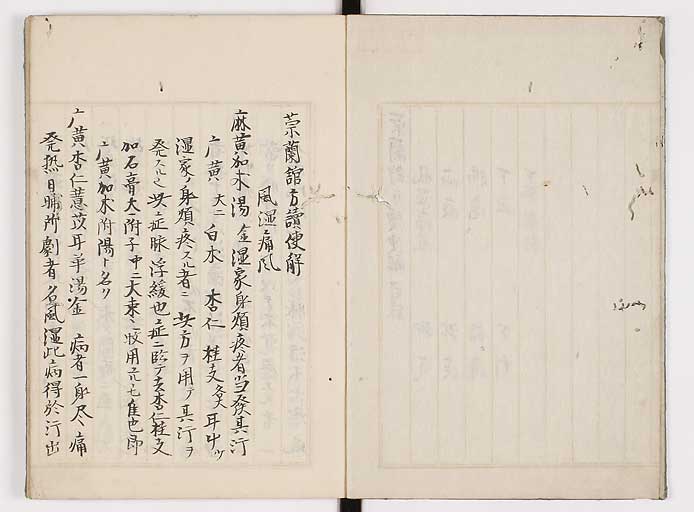 崇蘭館方讀便解
風湿痛風
麻黄加朮湯 金 湿家身煩疼者當發其汗
广黄 大二 白朮 杏仁 桂支 炙耳中ッ
湿家ノ身煩疼スル者ニ 此方ヲ用テ其汗ヲ
発スル 此症脉浮緩也症ニ臨テ去杏仁桂支
加石膏大一附子中二大束 用 モ佳也即
广黄加朮附陽ト名ク
广黄杏仁薏苡耳草湯 金 病者一身尽ク痛
発熱日晡所劇者名風湿此病得於汗出